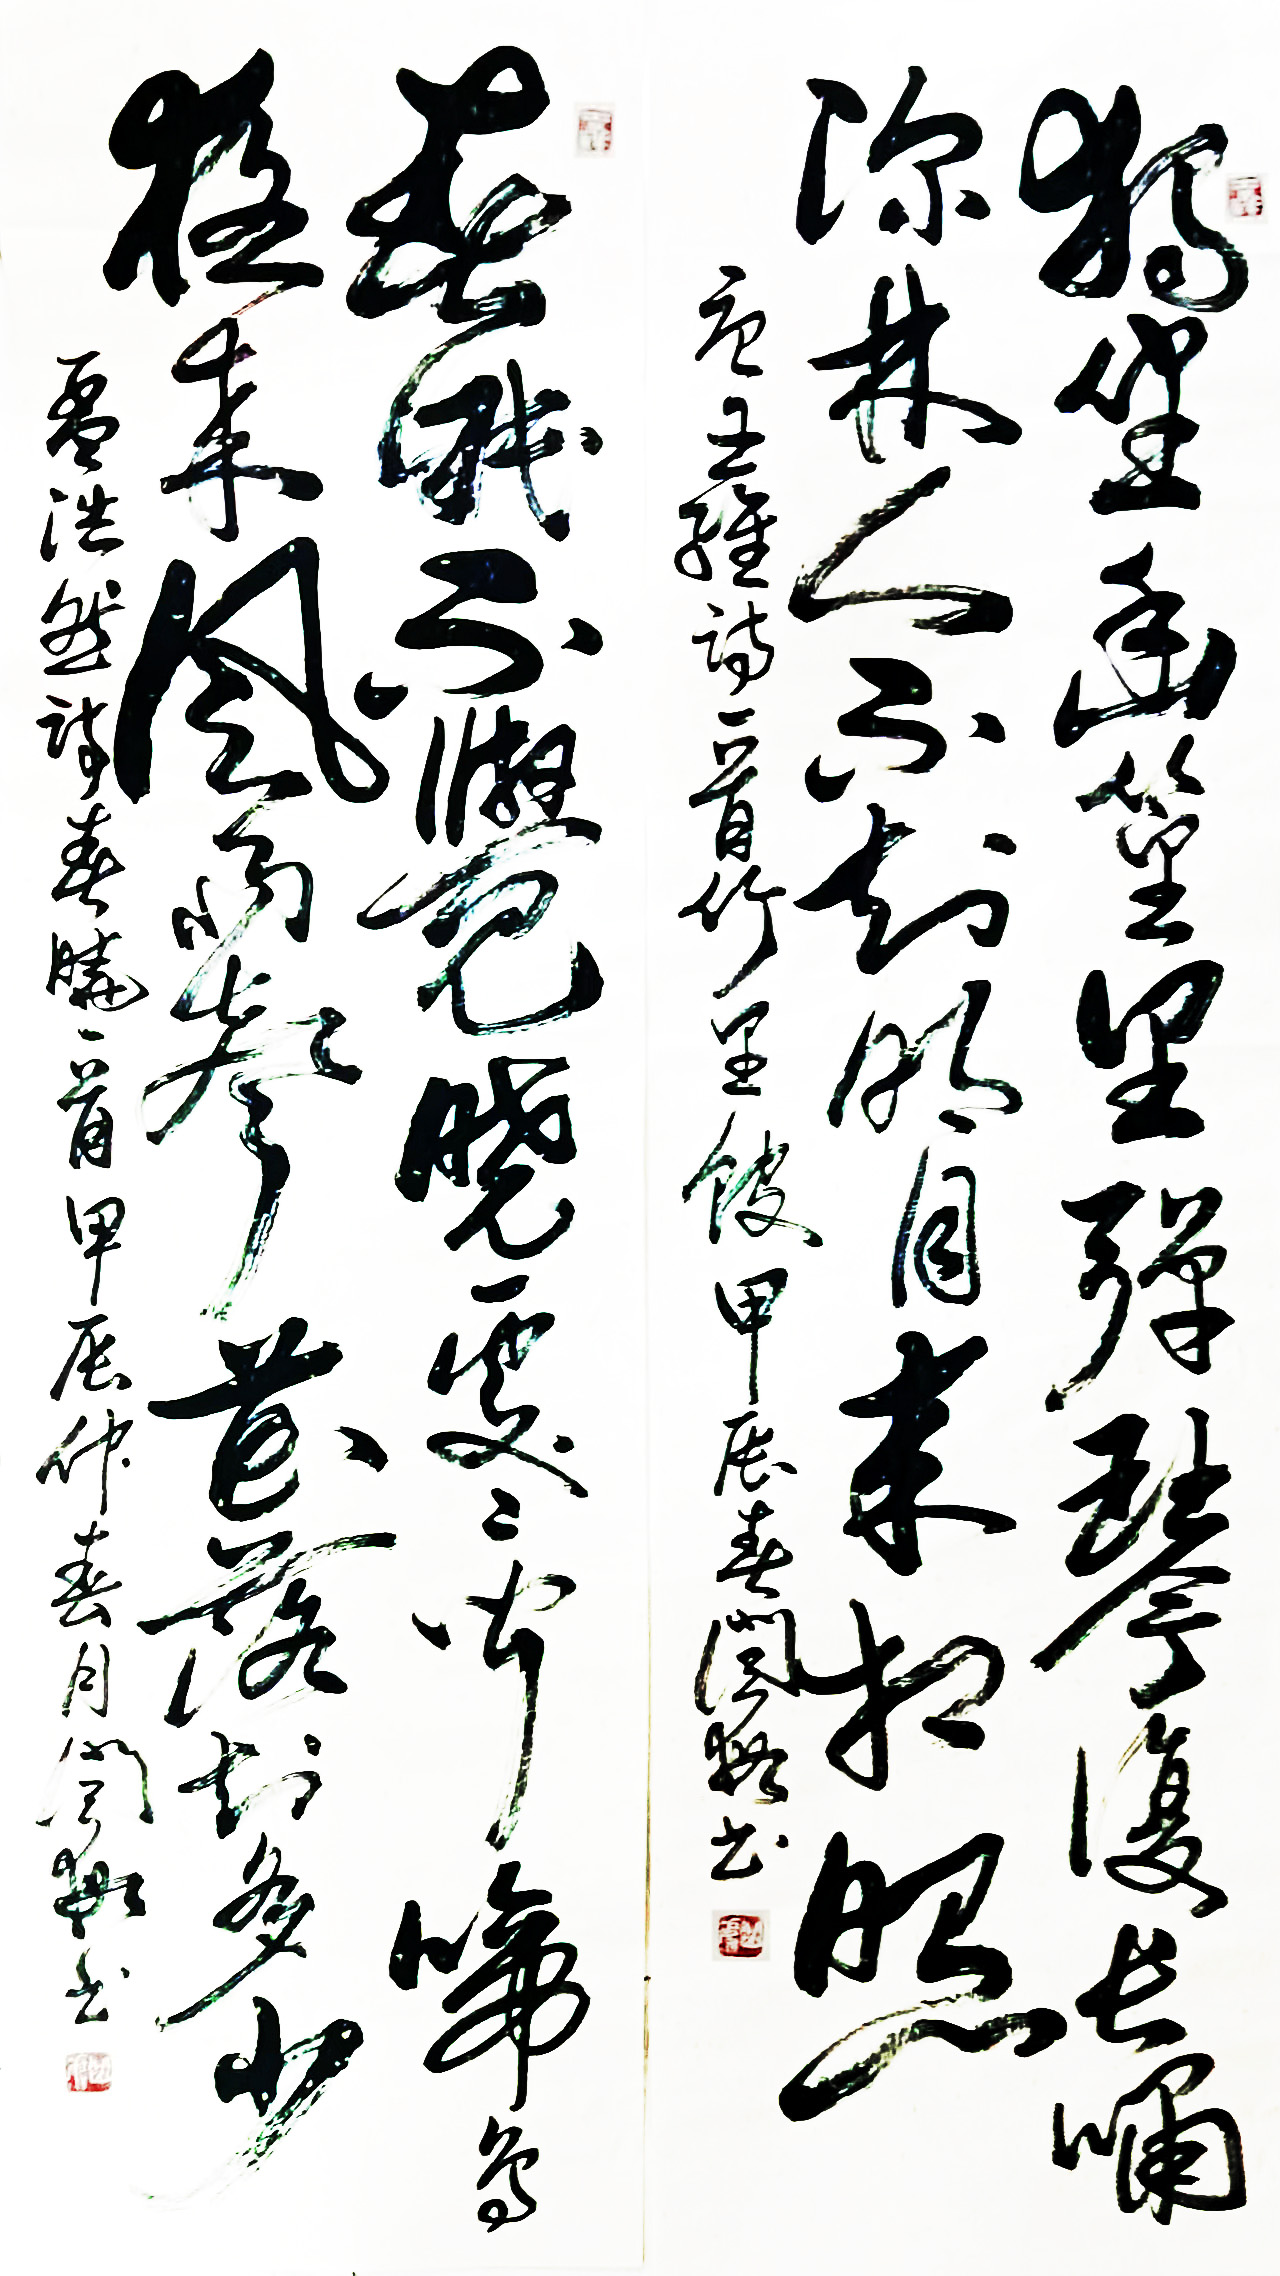 独坐幽篁里弹琴復长啸
深林人不知明月来相照
唐王维诗一首竹里馆甲辰春闫辉书
春眠不觉晓処処闻啼鸟
夜来风雨声花落知多少
孟浩然诗春晓一首甲辰仲春月闫辉书